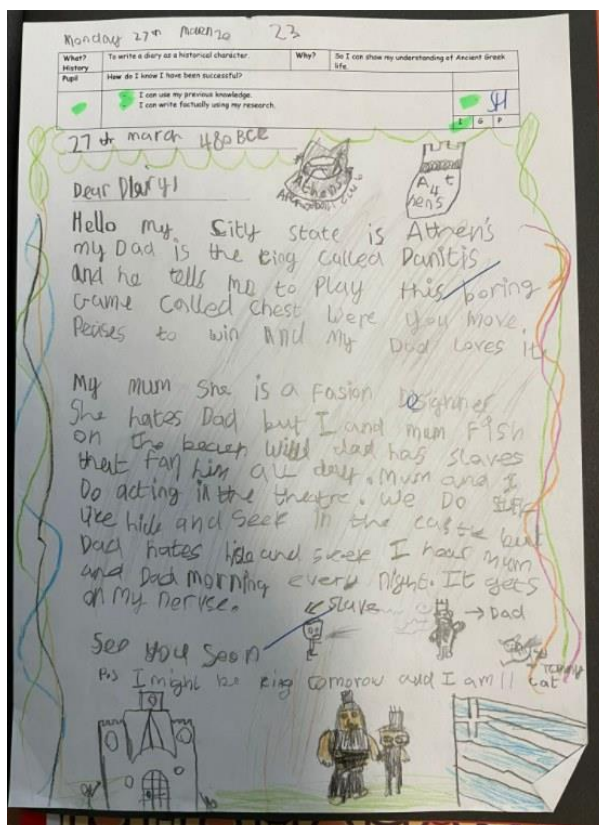 Monday 27th March 2023
What? History
To write a diary as a historical character.
Why?
So I can show my understanding of Ancient Greek life.
Pupil
How do I know I have been successful?
I can use my previous knowledge.
I can write factually using my research.
I G P
27th march 480BCE
Athens
A 4 t
hens
Dear Diary!
Hello my City state is Athen's
my Dad is the king called Danitis
and he tells me to Play this boring
Game called chest were you move
Peises to win And my Dad loves it
My mum she is a fasion Designer
She hates Dad but I and mum Fish
on the beach Will dad has slaves
that fan him all day. Mum and I
Do acting in the theatre. We Do stuff
like hide and seek in the castle but
Dad hates hide and seek I hear mum
and Dad morning every night. It gets
on my nervse.
slave
→ Dad
See you soon
cat
P.s I might be king tomorow and I am 11